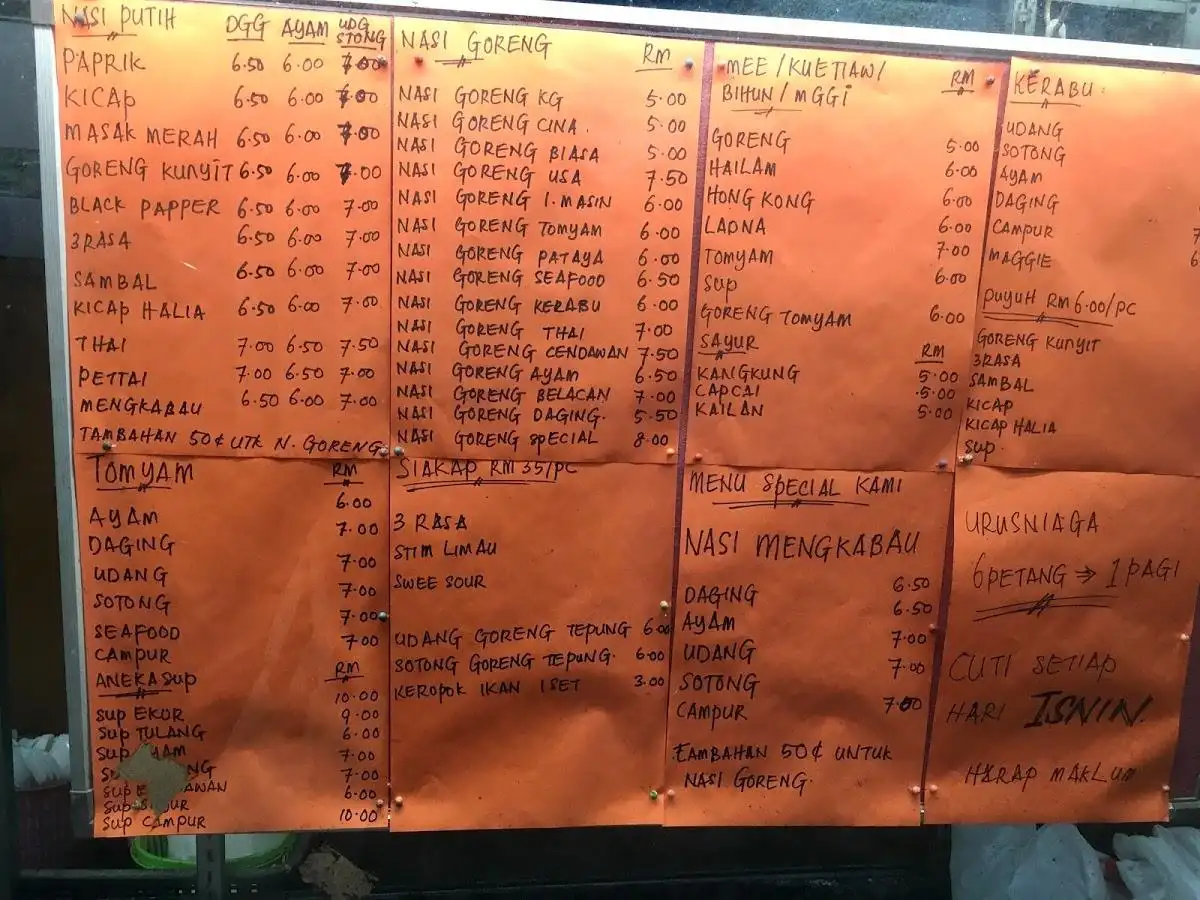 NASI PUTIH DGG AYAM UDG STONG
PAPRIK 6.50 6.00 7.00
KICAP 6.50 6.00 7.00
MASAK MERAH 6.50 6.00 7.00
GORENG KUNYIT 6.50 6.00 7.00
BLACK PAPPER 6.50 6.00 7.00
3 RASA 6.50 6.00 7.00
SAMBAL 6.50 6.00 7.00
KICAP HALIA 6.50 6.00 7.00
THAI 7.00 6.50 7.50
PETTAI 7.00 6.50 7.00
MENGKABAU 6.50 6.00 7.00
TAMBAHAN 50¢ UTK N. GORENG
NASI GORENG RM
NASI GORENG KG 5.00
NASI GORENG CINA 5.00
NASI GORENG BIASA 5.00
NASI GORENG USA 7.50
NASI GORENG I. MASIN 6.00
NASI GORENG TOMYAM 6.00
NASI GORENG PATAYA 6.00
NASI GORENG SEAFOOD 6.50
NASI GORENG KERABU 6.00
NASI GORENG THAI 7.00
NASI GORENG CENDAWAN 7.50
NASI GORENG AYAM 6.50
NASI GORENG BELACAN 7.00
NASI GORENG DAGING. 5.50
NASI GORENG SPECIAL 8.00
MEE / KUETIAW / RM
BIHUN / MGGI
GORENG 5.00
HAILAM 6.00
HONG KONG 6.00
LADNA 6.00
TOMYAM 7.00
SUP 6.00
GORENG TOMYAM 6.00
SAYUR RM
KANGKUNG 5.00
CAPCAI 5.00
KAILAN 5.00
KERABU:
UDANG
SOTONG
AYAM
DAGING
CAMPUR 7
MAGGIE 6
PUYUH RM 6.00/PC
GORENG KUNYIT
3RASA
SAMBAL
KICAP
KICAP HALIA
SUP.
TOMYAM RM
AYAM 6.00
DAGING 7.00
UDANG 7.00
SOTONG 7.00
SEAFOOD 7.00
CAMPUR 7.00
ANEKA SUP RM
SUP EKOR 10.00
SUP TULANG 9.00
SUP AYAM 6.00
7.00
7.00
6.00
SUP CAMPUR 10.00
SIAKAP RM 35/PC
3 RASA
STIM LIMAU
SWEE SOUR
UDANG GORENG TEPUNG 6.00
SOTONG GORENG TEPUNG. 6.00
KEROPOK IKAN 1 SET 3.00
MENU SPECIAL KAMI
NASI MENGKABAU
DAGING 6.50
AYAM 6.50
UDANG 7.00
SOTONG 7.00
CAMPUR 7.00
TAMBAHAN 50¢ UNTUK
NASI GORENG.
URUSNIAGA
6 PETANG ⇒ 1 PAGI
CUTI SETIAP
HARI ISNIN.
HARAP MAKLUM